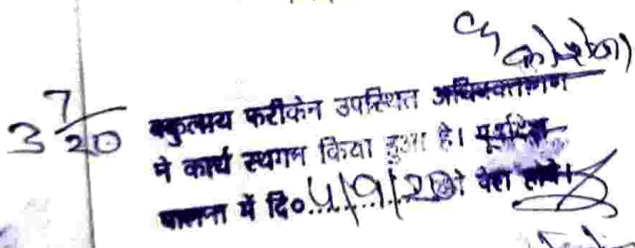 3 7/20 वकुलाय फरीकेन उपस्थित अधिवक्तागण
ने कार्य स्थगन किया हुआ है। पूर्वादेश
पालना में दि०....4/9/20 को पेश होवे।